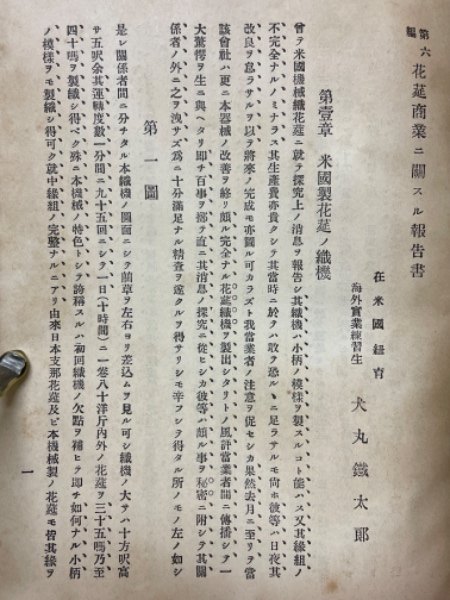 第六編 花莚商業ニ關スル報告書
在米國紐育
海外實業練習生 犬丸鐵太郎
第壹章 米國製花莚ノ織機
曾テ米國機械織花莚ニ就テ探究上ノ消息ヲ報告シ其織機ハ小柄ノ模樣ヲ製スルコト能ハス又其緣組ノ
不完全ナルノミナラス其生產費亦貴クシテ其當時ニ於テハ敢テ恐ルヽニ足ラサルモ尚ホ彼等ハ日夜其
改良ヲ怠ラサルヲ以テ將來ノ完成モ亦圖ル可カラズト我當業者ノ注意ヲ促セシカ果然去月ニ至リテ當
該會社ハ更ニ本器械ノ改善ヲ終リ頗ル完全ナル花莚織機ヲ製出シタリトノ風評當業者間ニ傳播シテ一
大驚愕ヲ生ニ與ヘタリ卽チ百事ヲ擲テ直ニ其消息ノ探究ニ從ヒシカ彼等ハ頗ル事ヲ秘密ニ附シテ其關
係者ノ外ニ之ヲ洩サズ爲ニ十分滿足ナル精査ヲ遂クルヲ得サリシモ辛フシテ得タル所ノモノ左ノ如シ
第一圖
是レ關係者間ニ分チタル本織機ノ圖面ニシテ前草ヲ左右ヨリ差込ムヲ見ル可シ織機ノ大サハ十方呎高
サ五呎余其運轉度數一分間ニ九十五回ニシテ一日(十時間)ニ一卷八十洋斤內外ノ花莚ヲ三十五嗎乃至
四十嗎ヲ製織シ得ベク殊ニ本機械ノ特色トシテ誇稱スルハ初回織機ノ欠點ヲ補ヒ卽チ如何ナル小柄
ノ模樣ヲモ製織シ得可ク就中緣組ノ完整ナルニアリ由來日本支那花莚及ビ本機械製ノ花莚モ皆其緣ヲ
一